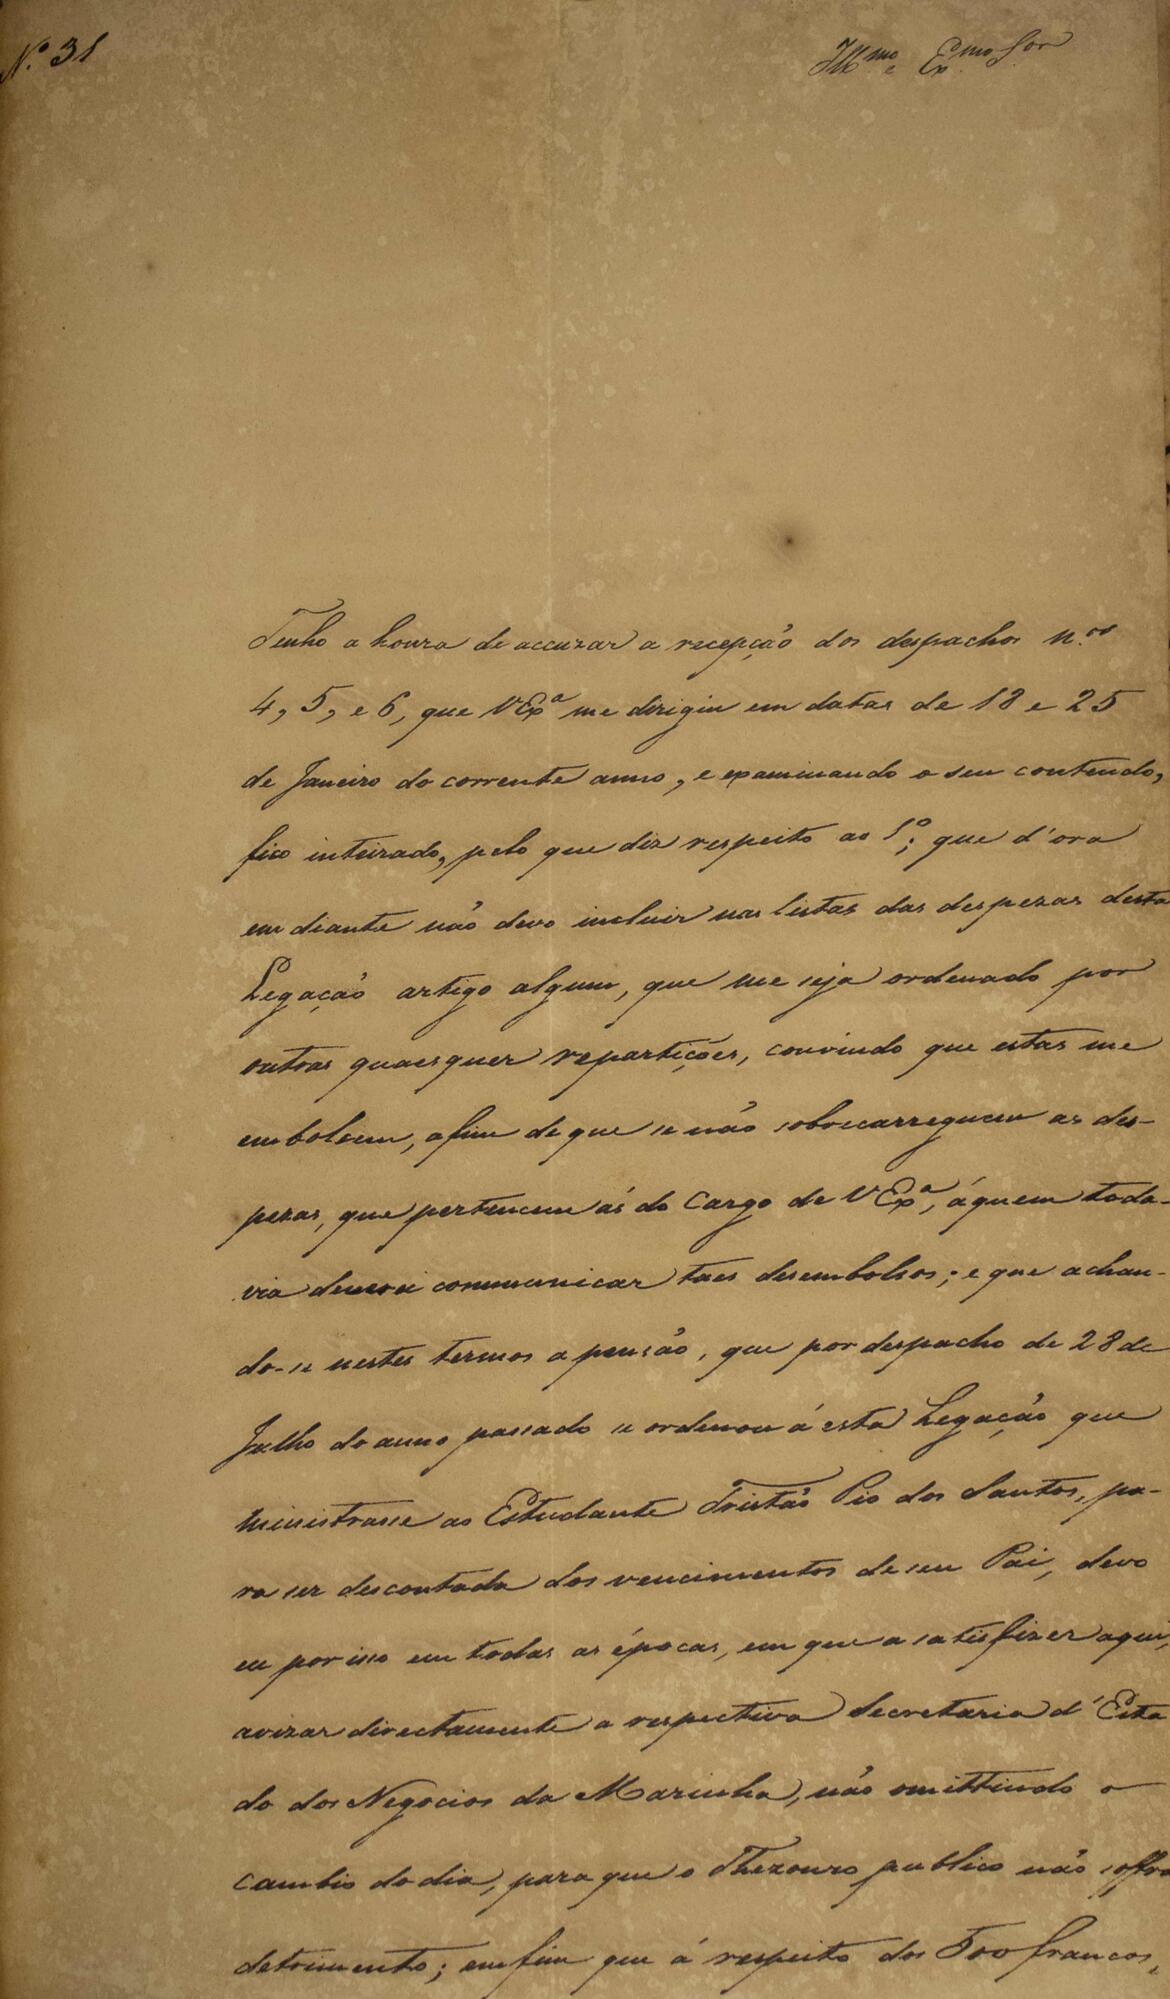 N.º 31
Ill.mo e Ex.mo Sor
Tenho a honra de accuzar a recepção dos despachos n.os
4, 5, e 6, que VExª me dirigiu em datas de 18 e 25
de Janeiro do corrente anno, e examinando o seu contendo,
fico inteirado, pelo que diz respeito ao 1º; que d'ora
em diante não devo incluir nas listas das despezas desta
Legação artigo algum, que me seja ordenado por
outras quaesquer repartições, convindo que estas me
embolsem, afim de que se não sobrecarreguem as des-
pezas, que pertencem ás do Cargo de VExª, á quem toda-
via deverei communicar taes desembolsos; e que achan-
do-se nestes termos a pensão, que por despacho de 28 de
Julho do anno passado se ordenou á esta Legação que
ministrasse ao Estudante Tristão Pio dos Santos, pa-
ra ser descontada dos vencimentos de seu Pai, devo
eu por isso em todas as épocas, em que a satisfizer aqui,
avizar directamente a respectiva Secretaria d'Esta
do dos Negocios da Marinha, não omittindo o
cambio do dia, para que o Thezouro publico não soffra
detrimento; emfim que á respeito dos francos,